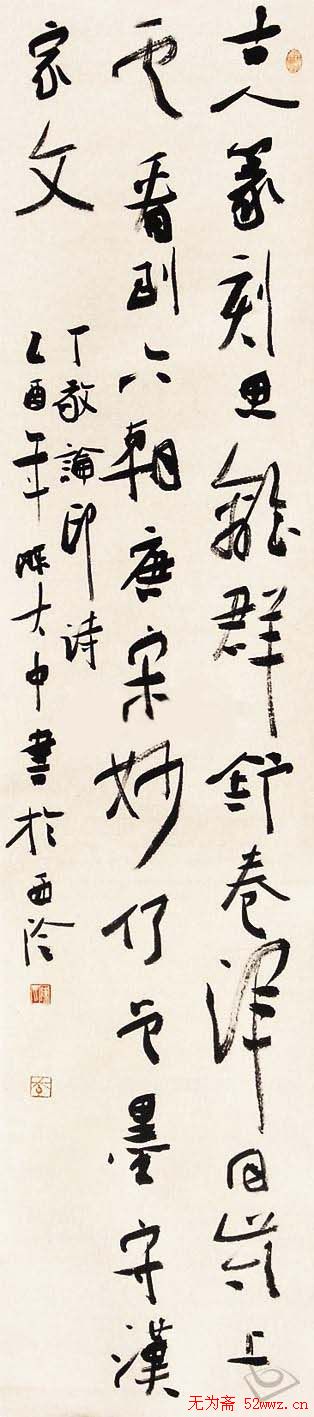 古人篆刻思離群舒卷渾同嶺上
雲看到六朝唐宋妙何曾墨守漢
家文
丁敬論印詩
乙酉年陳大中書於西泠
无为斋 52wwz.cn